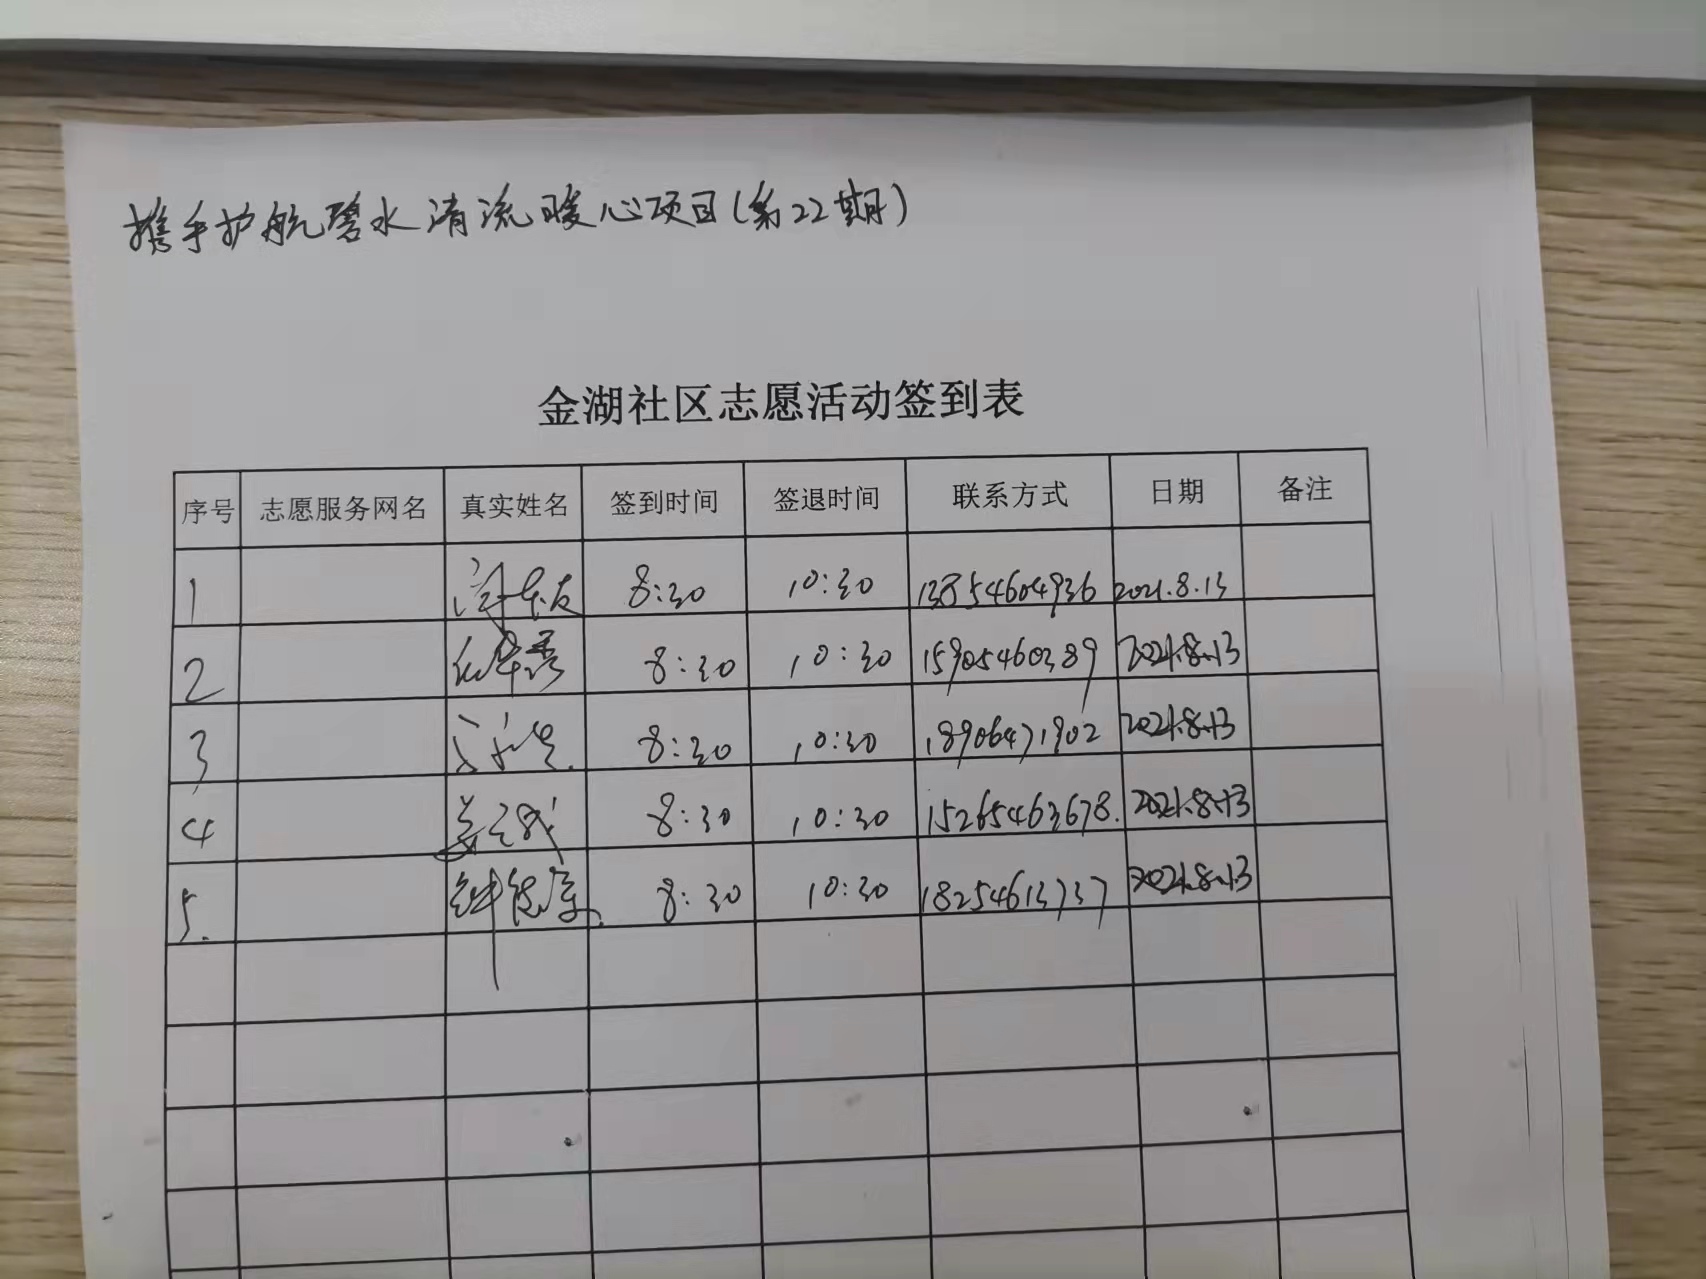 携手护航碧水清流暖心项目(第22期)
金湖社区志愿活动签到表
序号 志愿服务网名 真实姓名 签到时间 签退时间 联系方式 日期 备注
1 8:30 10:30 13854604936 2021.8.13
2 8:30 10:30 15905460389 2021.8.13
3 8:30 10:30 18906471902 2021.8.13
4 8:30 10:30 15265463678. 2021.8.13
5. 8:30 10:30 18254613737 2021.8.13